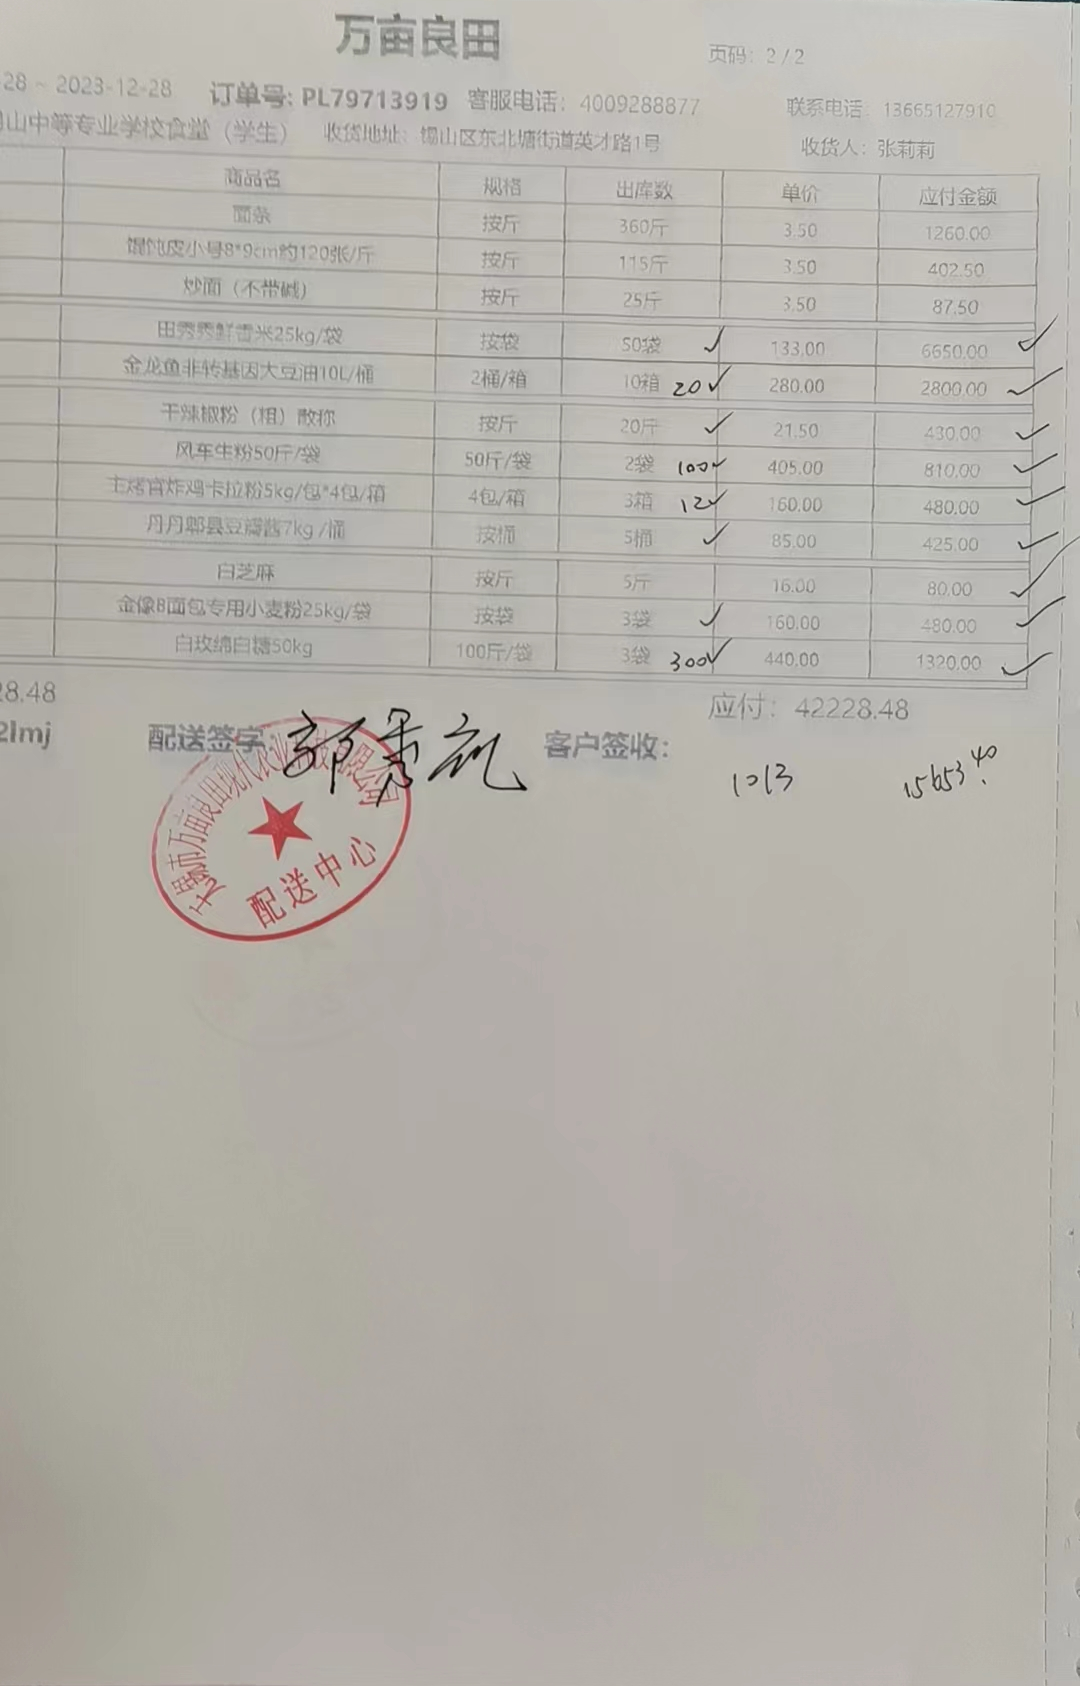 万亩良田
页码：2 / 2
28 ~ 2023-12-28 订单号: PL79713919 客服电话：4009288877 联系电话：13665127910
山中等专业学校食堂（学生） 收货地址：锡山区东北塘街道英才路1号 收货人：张莉莉
商品名 规格 出库数 单价 应付金额
面条 按斤 360斤 3.50 1260.00
馄饨皮小号8*9cm约120张/斤 按斤 115斤 3.50 402.50
炒面（不带碱） 按斤 25斤 3.50 87.50
田秀秀鲜香米25kg/袋 按袋 50袋 ✓ 133.00 6650.00 ✓
金龙鱼非转基因大豆油10L/桶 2桶/箱 10箱 20✓ 280.00 2800.00 ✓
干辣椒粉（粗）散称 按斤 20斤 ✓ 21.50 430.00 ✓
风车生粉50斤/袋 50斤/袋 2袋 100✓ 405.00 810.00 ✓
主烤官炸鸡卡拉粉5kg/包*4包/箱 4包/箱 3箱 12✓ 160.00 480.00 ✓
丹丹郫县豆瓣酱7kg /桶 按桶 5桶 ✓ 85.00 425.00 ✓
白芝麻 按斤 5斤 16.00 80.00 ✓
金像B面包专用小麦粉25kg/袋 按袋 3袋 ✓ 160.00 480.00 ✓
白玫绵白糖50kg 100斤/袋 3袋 300✓ 440.00 1320.00 ✓
28.48 应付：42228.48
2lmj 配送签字: 郭秀礼 客户签收：
1013 15653.40
无锡市万亩良田现代农业科技有限公司
配送中心